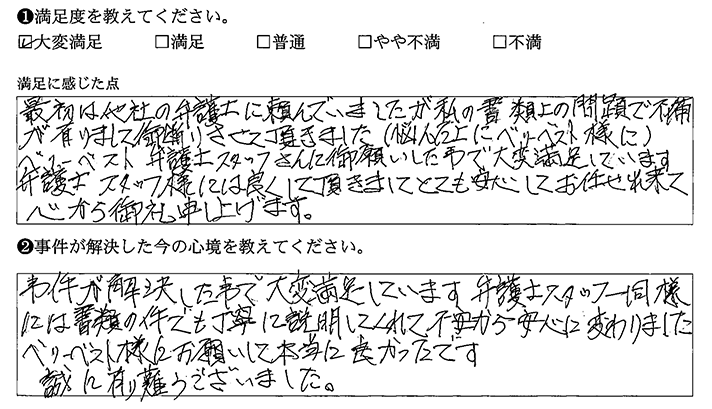 ❶満足度を教えてください。
☑大変満足 □満足 □普通 □やや不満 □不満
満足に感じた点
最初は他社の弁護士に頼んでいましたが私の書類上の問題で不備
が有りまして御断りさせて頂きました(悩んだ上にベリーベスト様に)
ベリーベスト弁護士スタッフさんに御願いした事で大変満足しています
弁護士スタッフ様には良くして頂きましてとても安心してお任せ出来て
心から御礼申し上げます。
❷事件が解決した今の心境を教えてください。
事件が解決した事で大変満足しています 弁護士スタッフ一同様
には書類の件でも丁寧に説明してくれて不安から安心に変わりました
ベリーベスト様にお願いして本当に良かったです
誠に有り難うございました。